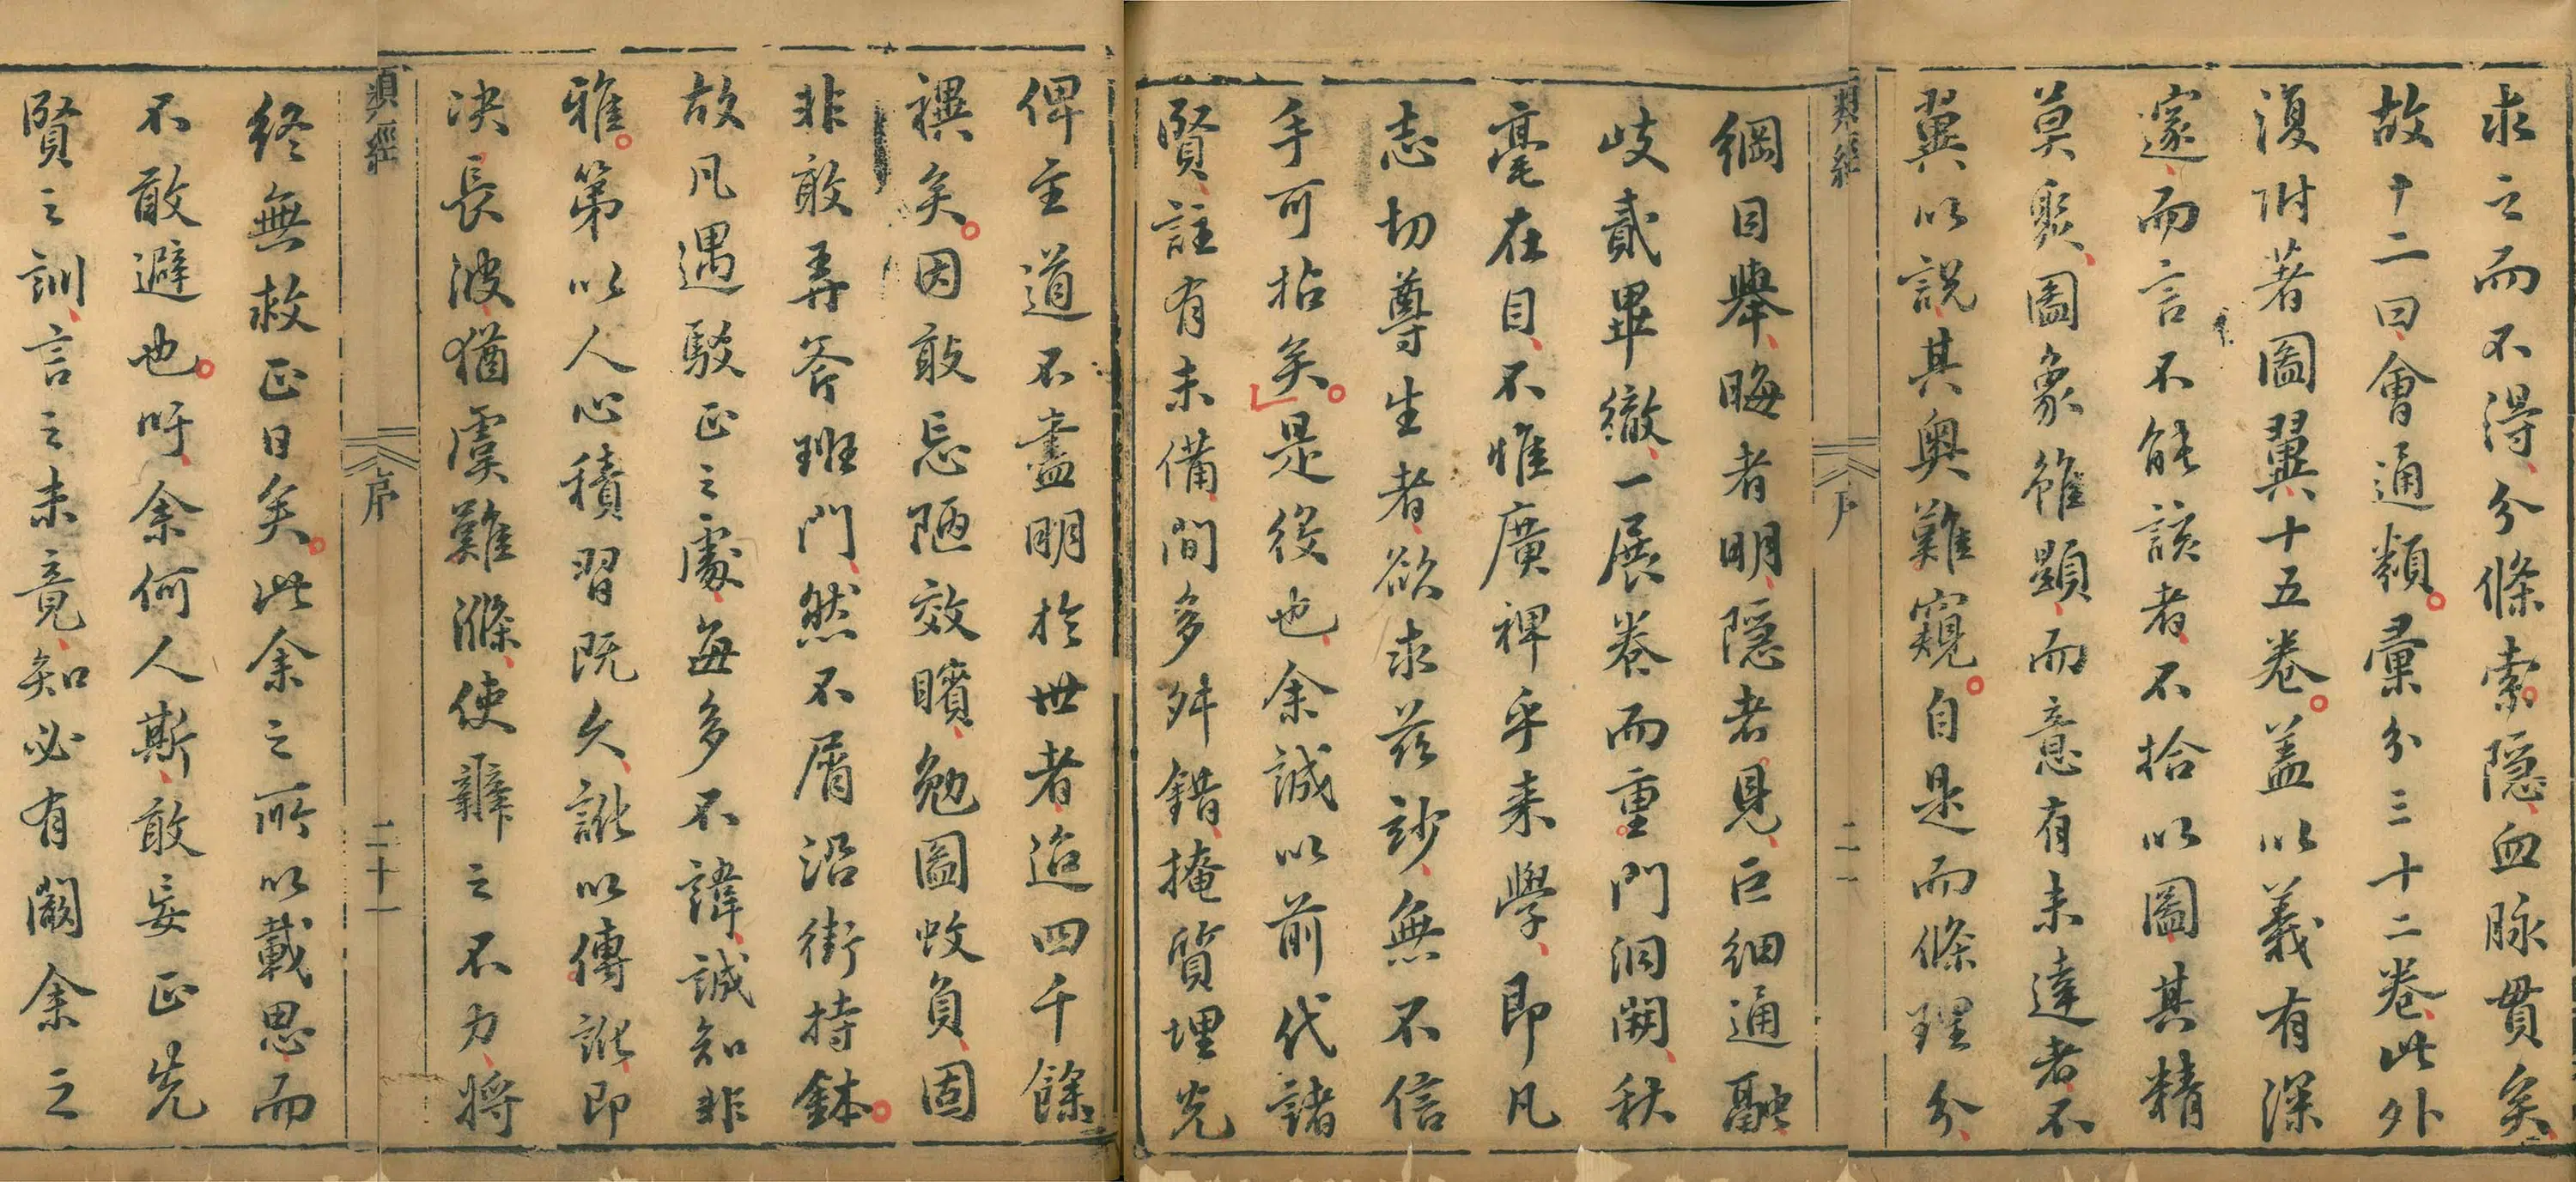 求之而不得分條索隱血脉貫矣
故十二曰會通類彙分三十二卷此外
復附著圖翼十五卷盖以義有深
邃而言不能該者不拾以圖其精
莫聚圖象雖顯而意有未達者不
翼以說其奧難窺自是而條理分
類經
序
二一
綱目舉晦者明隱者見巨細通融
歧貳畢徹一展卷而重門洞闢秋
毫在目不惟廣裨乎来學即凡
志切尊生者欲求兹妙無不信
手可拈矣是役也余誠以前代諸
賢註有未備間多舛錯掩質埋光
俾至道不盡明於世者迨四千餘
禩矣因敢忘陋效矉勉圖蚊負固
非敢弄斧班門然不屑沿街持鉢
故凡遇駁正之處每多不諱誠知非
雅第以人心積習既久訛以傳訛即
决長波猶虞難滌使辭之不力将
類經
序
二十一
終無救正日矣此余之所以載思而
不敢避也吁余何人斯敢妄正先
賢之訓言之未竟知必有闕余之